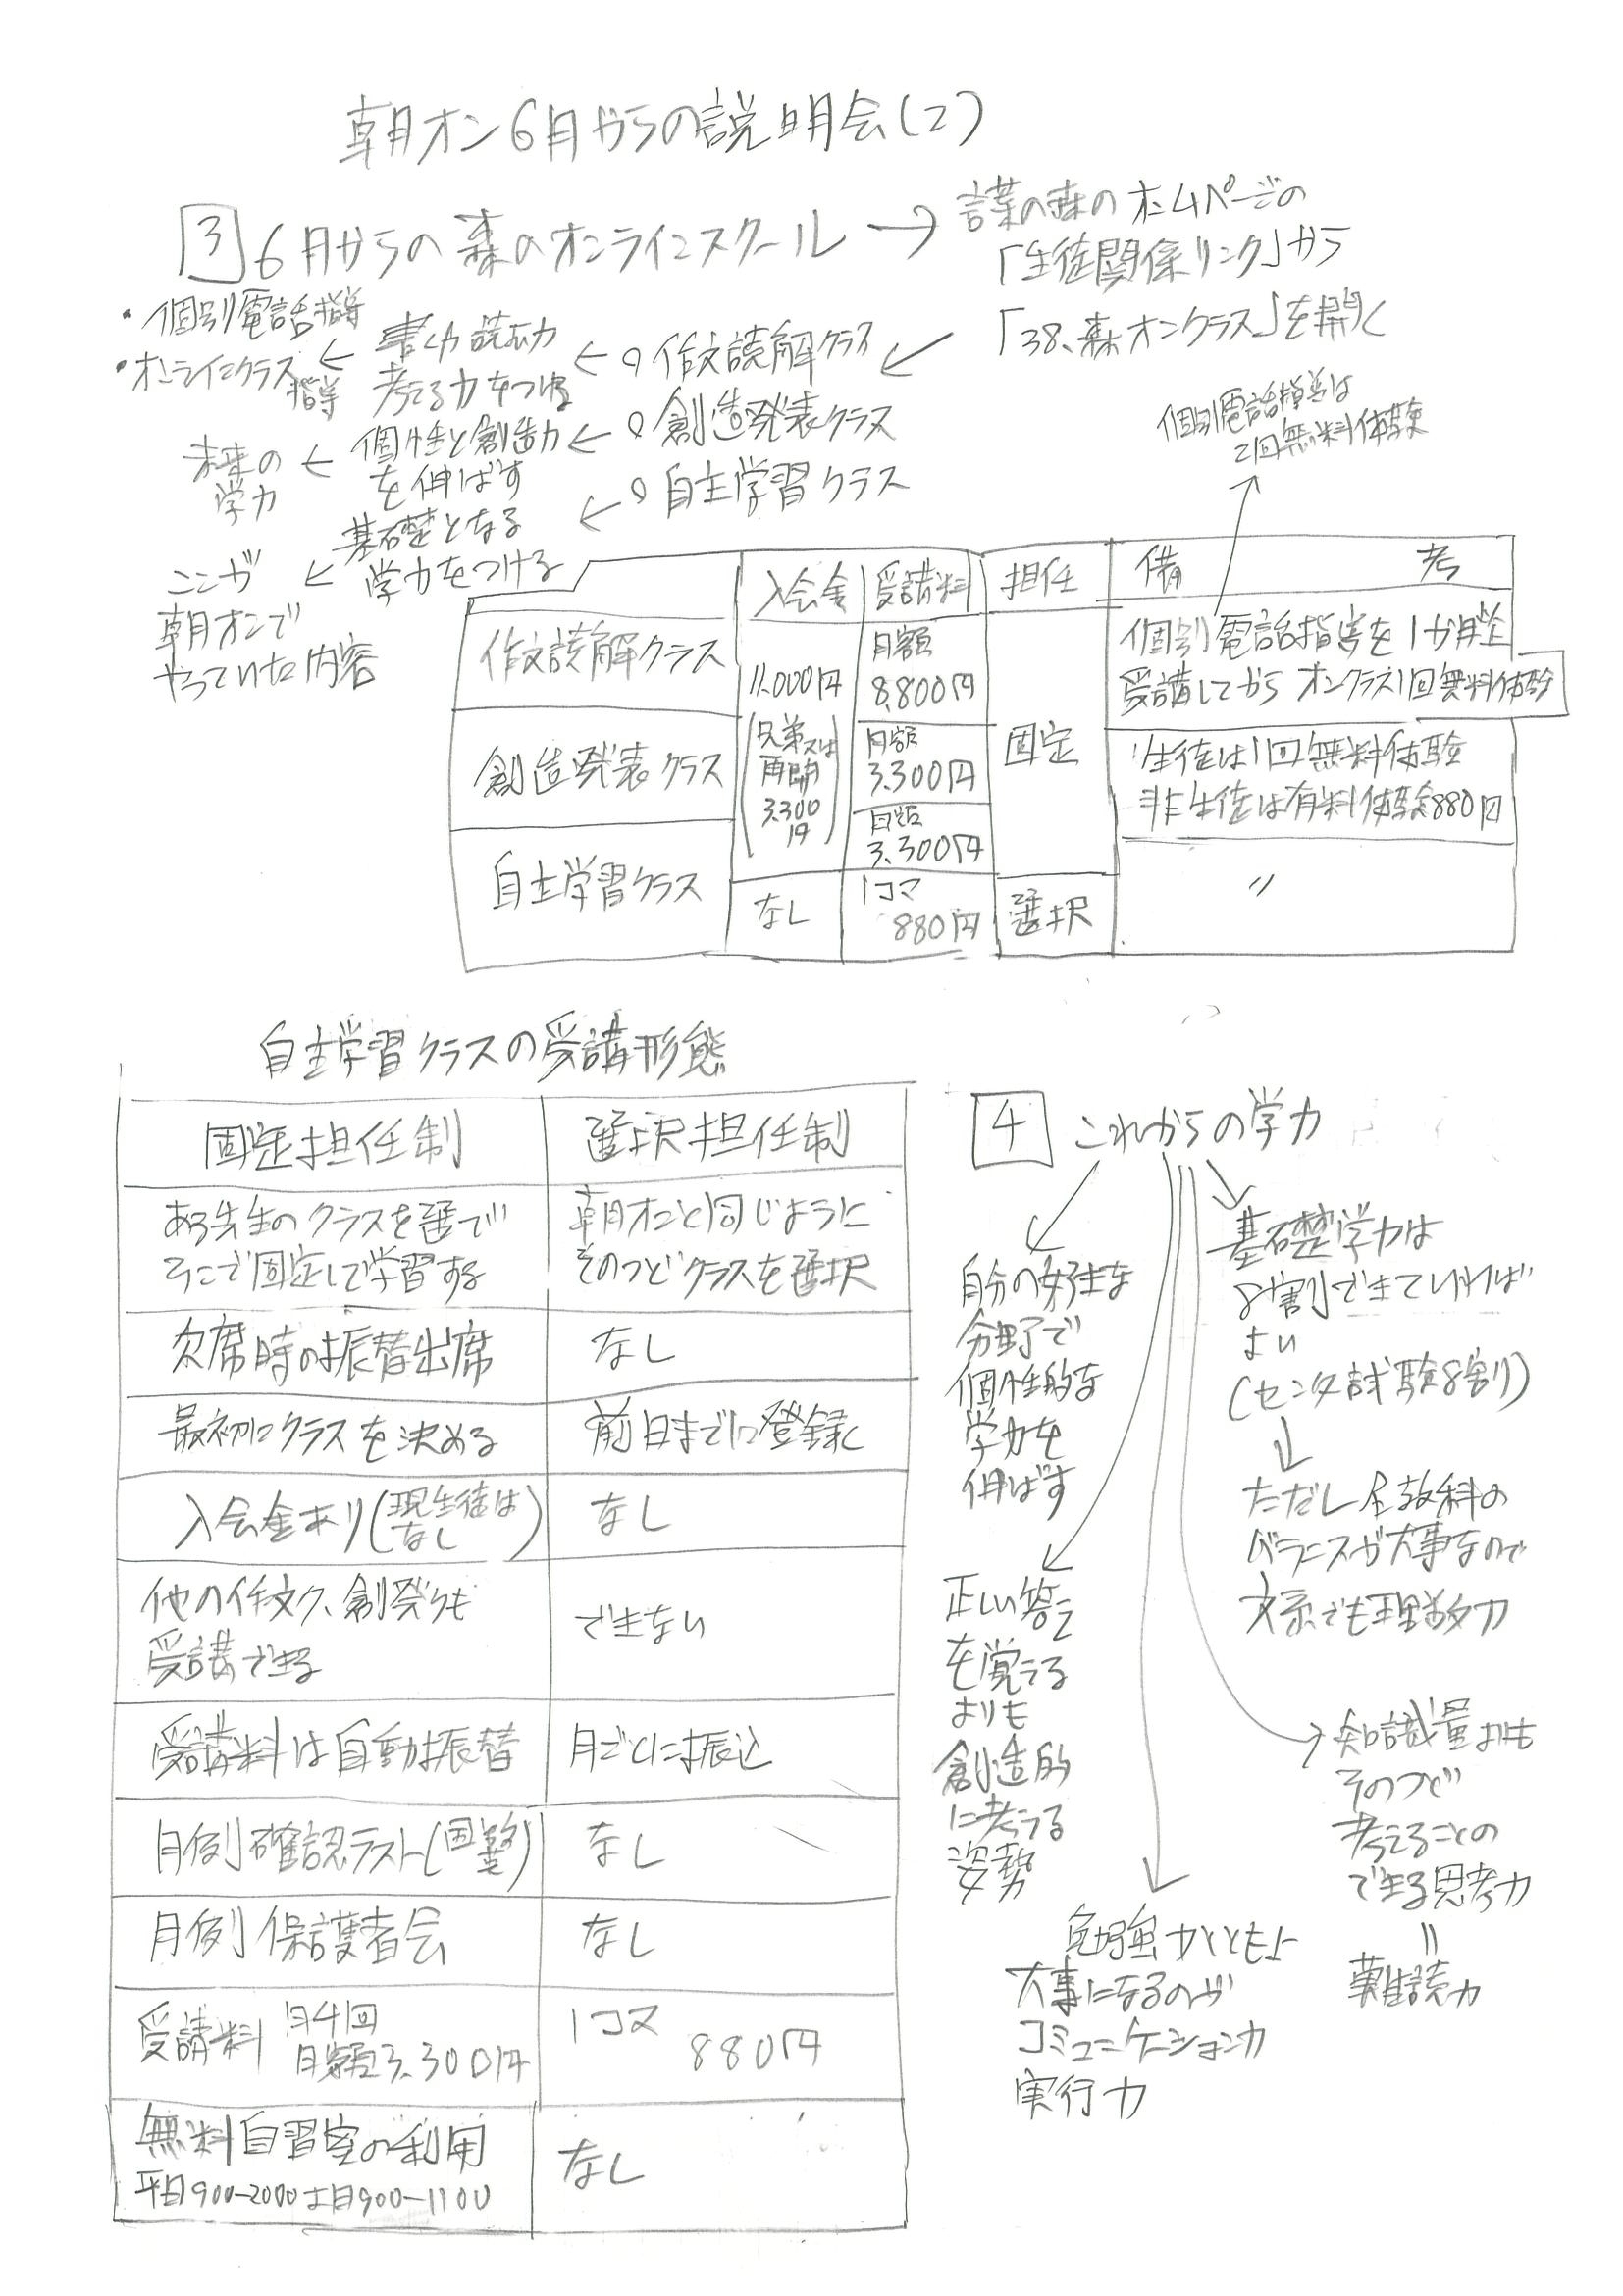 朝オン6月からの説明会(2)
3 6月からの森のオンラインスクール → 言葉の森のホームページの
「生徒関係リンク」から
「38、森オンクラス」を開く
・個別電話指導
・オンラインクラス指導
← 書く力 読む力
考える力をつける
← 作文読解クラス
未来の
学力
← 個性と創造力
を伸ばす
← 創造発表クラス
ここが
朝オンで
やっていた内容
← 基礎となる
学力をつける
← 自主学習クラス
個別電話指導は
2回無料体験
入会金 受講料 担任 備考
作文読解クラス
11.000円
(兄弟又は
再開
3.300
円)
月額
8.800円
固定
個別電話指導を1か月以上
受講してから オンクラス1回無料体験
創造発表クラス
月額
3.300円
生徒は1回無料体験
非生徒は有料体験880円
自主学習クラス
月額
3.300円
〃
なし
1コマ
880円
選択
自主学習クラスの受講形態
固定担任制 選択担任制
ある先生のクラスを選で
そこで固定して学習する
朝オンと同じように
そのつどクラスを選択
欠席時の振替出席 なし
最初にクラスを決める 前日までに登録
入会金あり(現生徒は
なし)
なし
他の作文ク、創発クも
受講できる
できない
受講料は自動振替 月ごとに振込
月例確認テスト(国数英) なし
月例保護者会 なし
受講料 月4回
月額3.300円
1コマ
880円
無料自習室の利用
平日900-2000土日900-1100
なし
4 これからの学力
自分の好きな
分野で
個性的な
学力を
伸ばす
正しい答え
を覚える
よりも
創造的
に考える
姿勢
勉強力とともに
大事になるのが
コミュニケーション力
実行力
基礎学力は
8割できていれば
よい
(センタ試験8割)
↓
ただし全教科の
バランスが大事なので
文系でも理数力
知識量よりも
そのつど
考えることの
できる思考力
〃
難読力